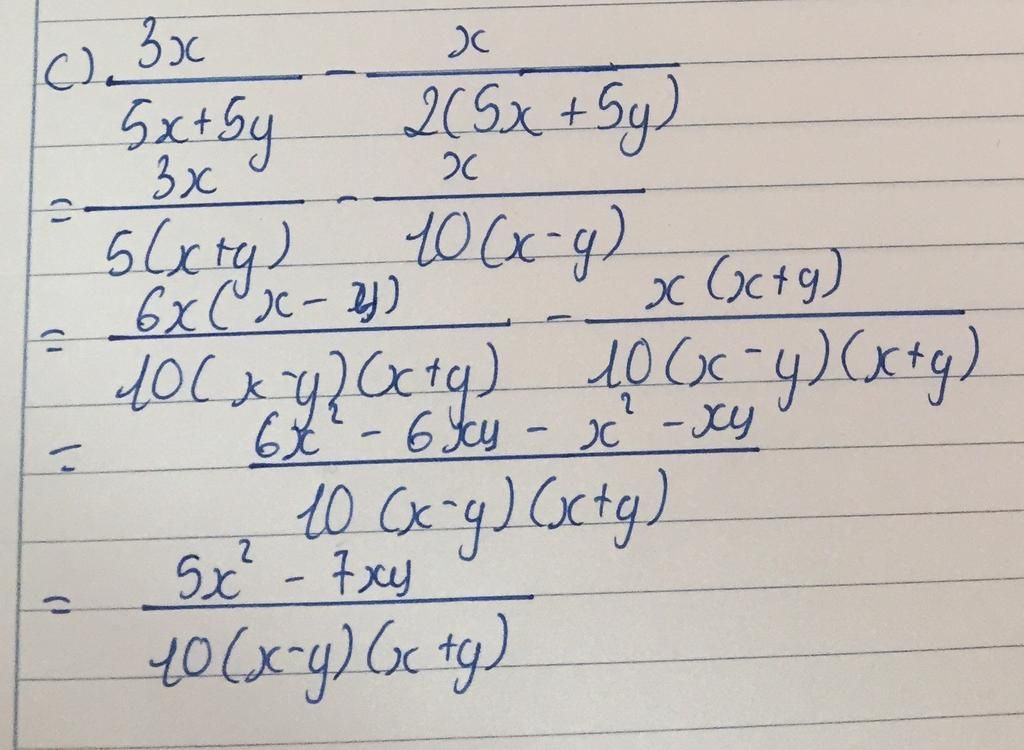 c) 3x / 5x+5y - x / 2(5x+5y)
= 3x / 5(x+y) - x / 10(x-y)
= 6x(x-y) / 10(x-y)(x+y) - x(x+y) / 10(x-y)(x+y)
= 6x² - 6xy - x² - xy / 10(x-y)(x+y)
= 5x² - 7xy / 10(x-y)(x+y)